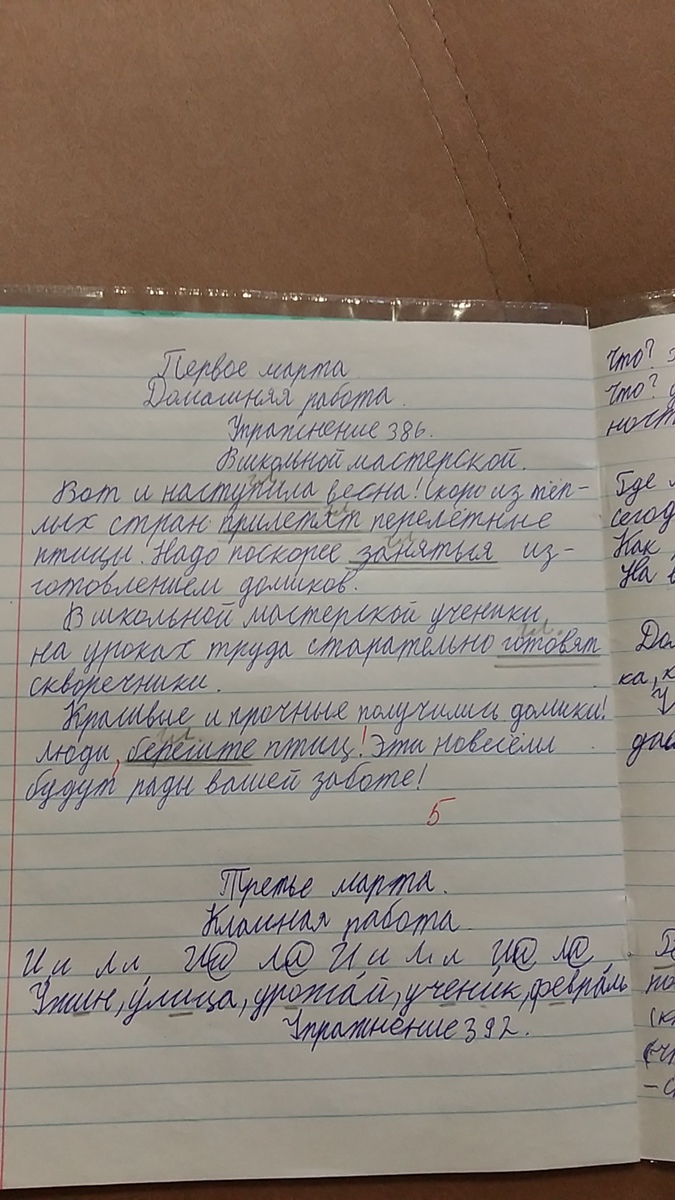 Первое марта
Домашняя работа.
Упражнение 386.
В школьной мастерской.
Вот и наступила весна! Скоро из тёп-
лых стран прилетят перелётные
птицы. Надо поскорее заняться из-
готовлением домиков.
В школьной мастерской ученики
на уроках труда старательно готовят
скворечники.
Красивые и прочные получились домики!
Люди, берегите птиц! Эти новосёлы
будут рады вашей заботе!
5
Третье марта.
Классная работа.
И и л л И@ л@ И и л л И@ л@
Ужин, улица, урожай, ученик, февраль
Упражнение 392.
Что?
Что?
ност
Где
сегод
Как
На в
До
ка, к
дав